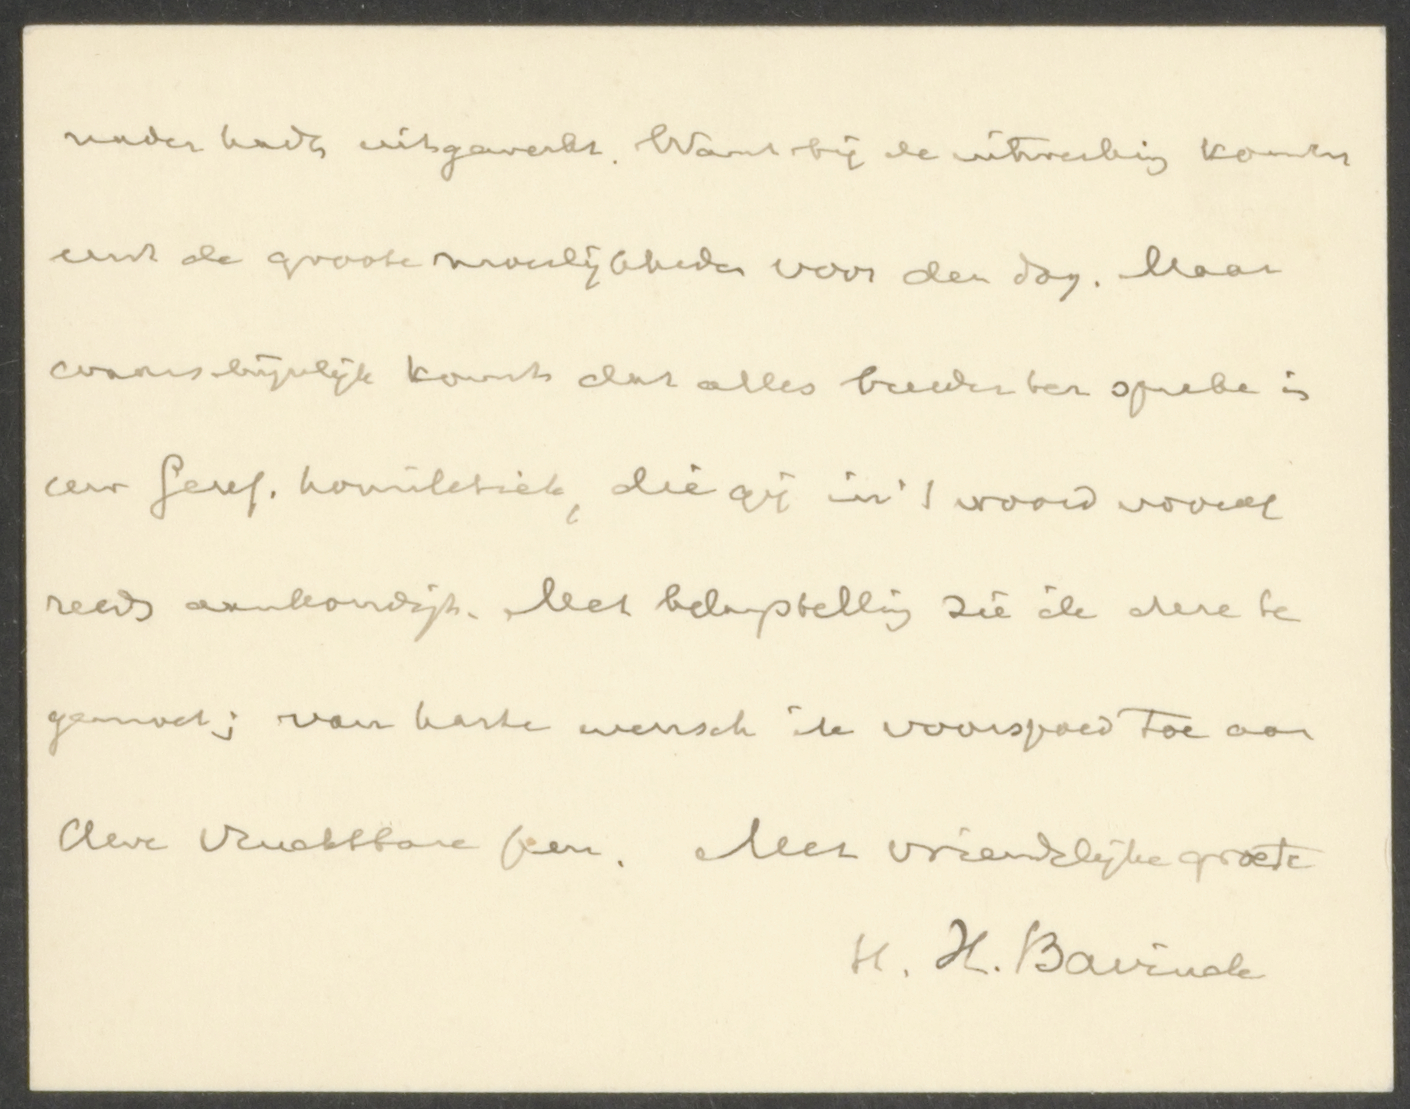 nader hadt uitgewerkt. Want bij de uitwerking komen
eerst de groote moeilijkheden voor den dag. Maar
waarschijnlijk komt dat alles breeder ter sprake in
uw Geref. homiletiek, die gij in 't woord vooraf
reeds aankondigt. Met belangstelling zie ik deze te
gemoet; van harte wensch ik voorspoed toe aan
Uwe vruchtbare pen. Met vriendelijke groete
t. t. H. Bavinck